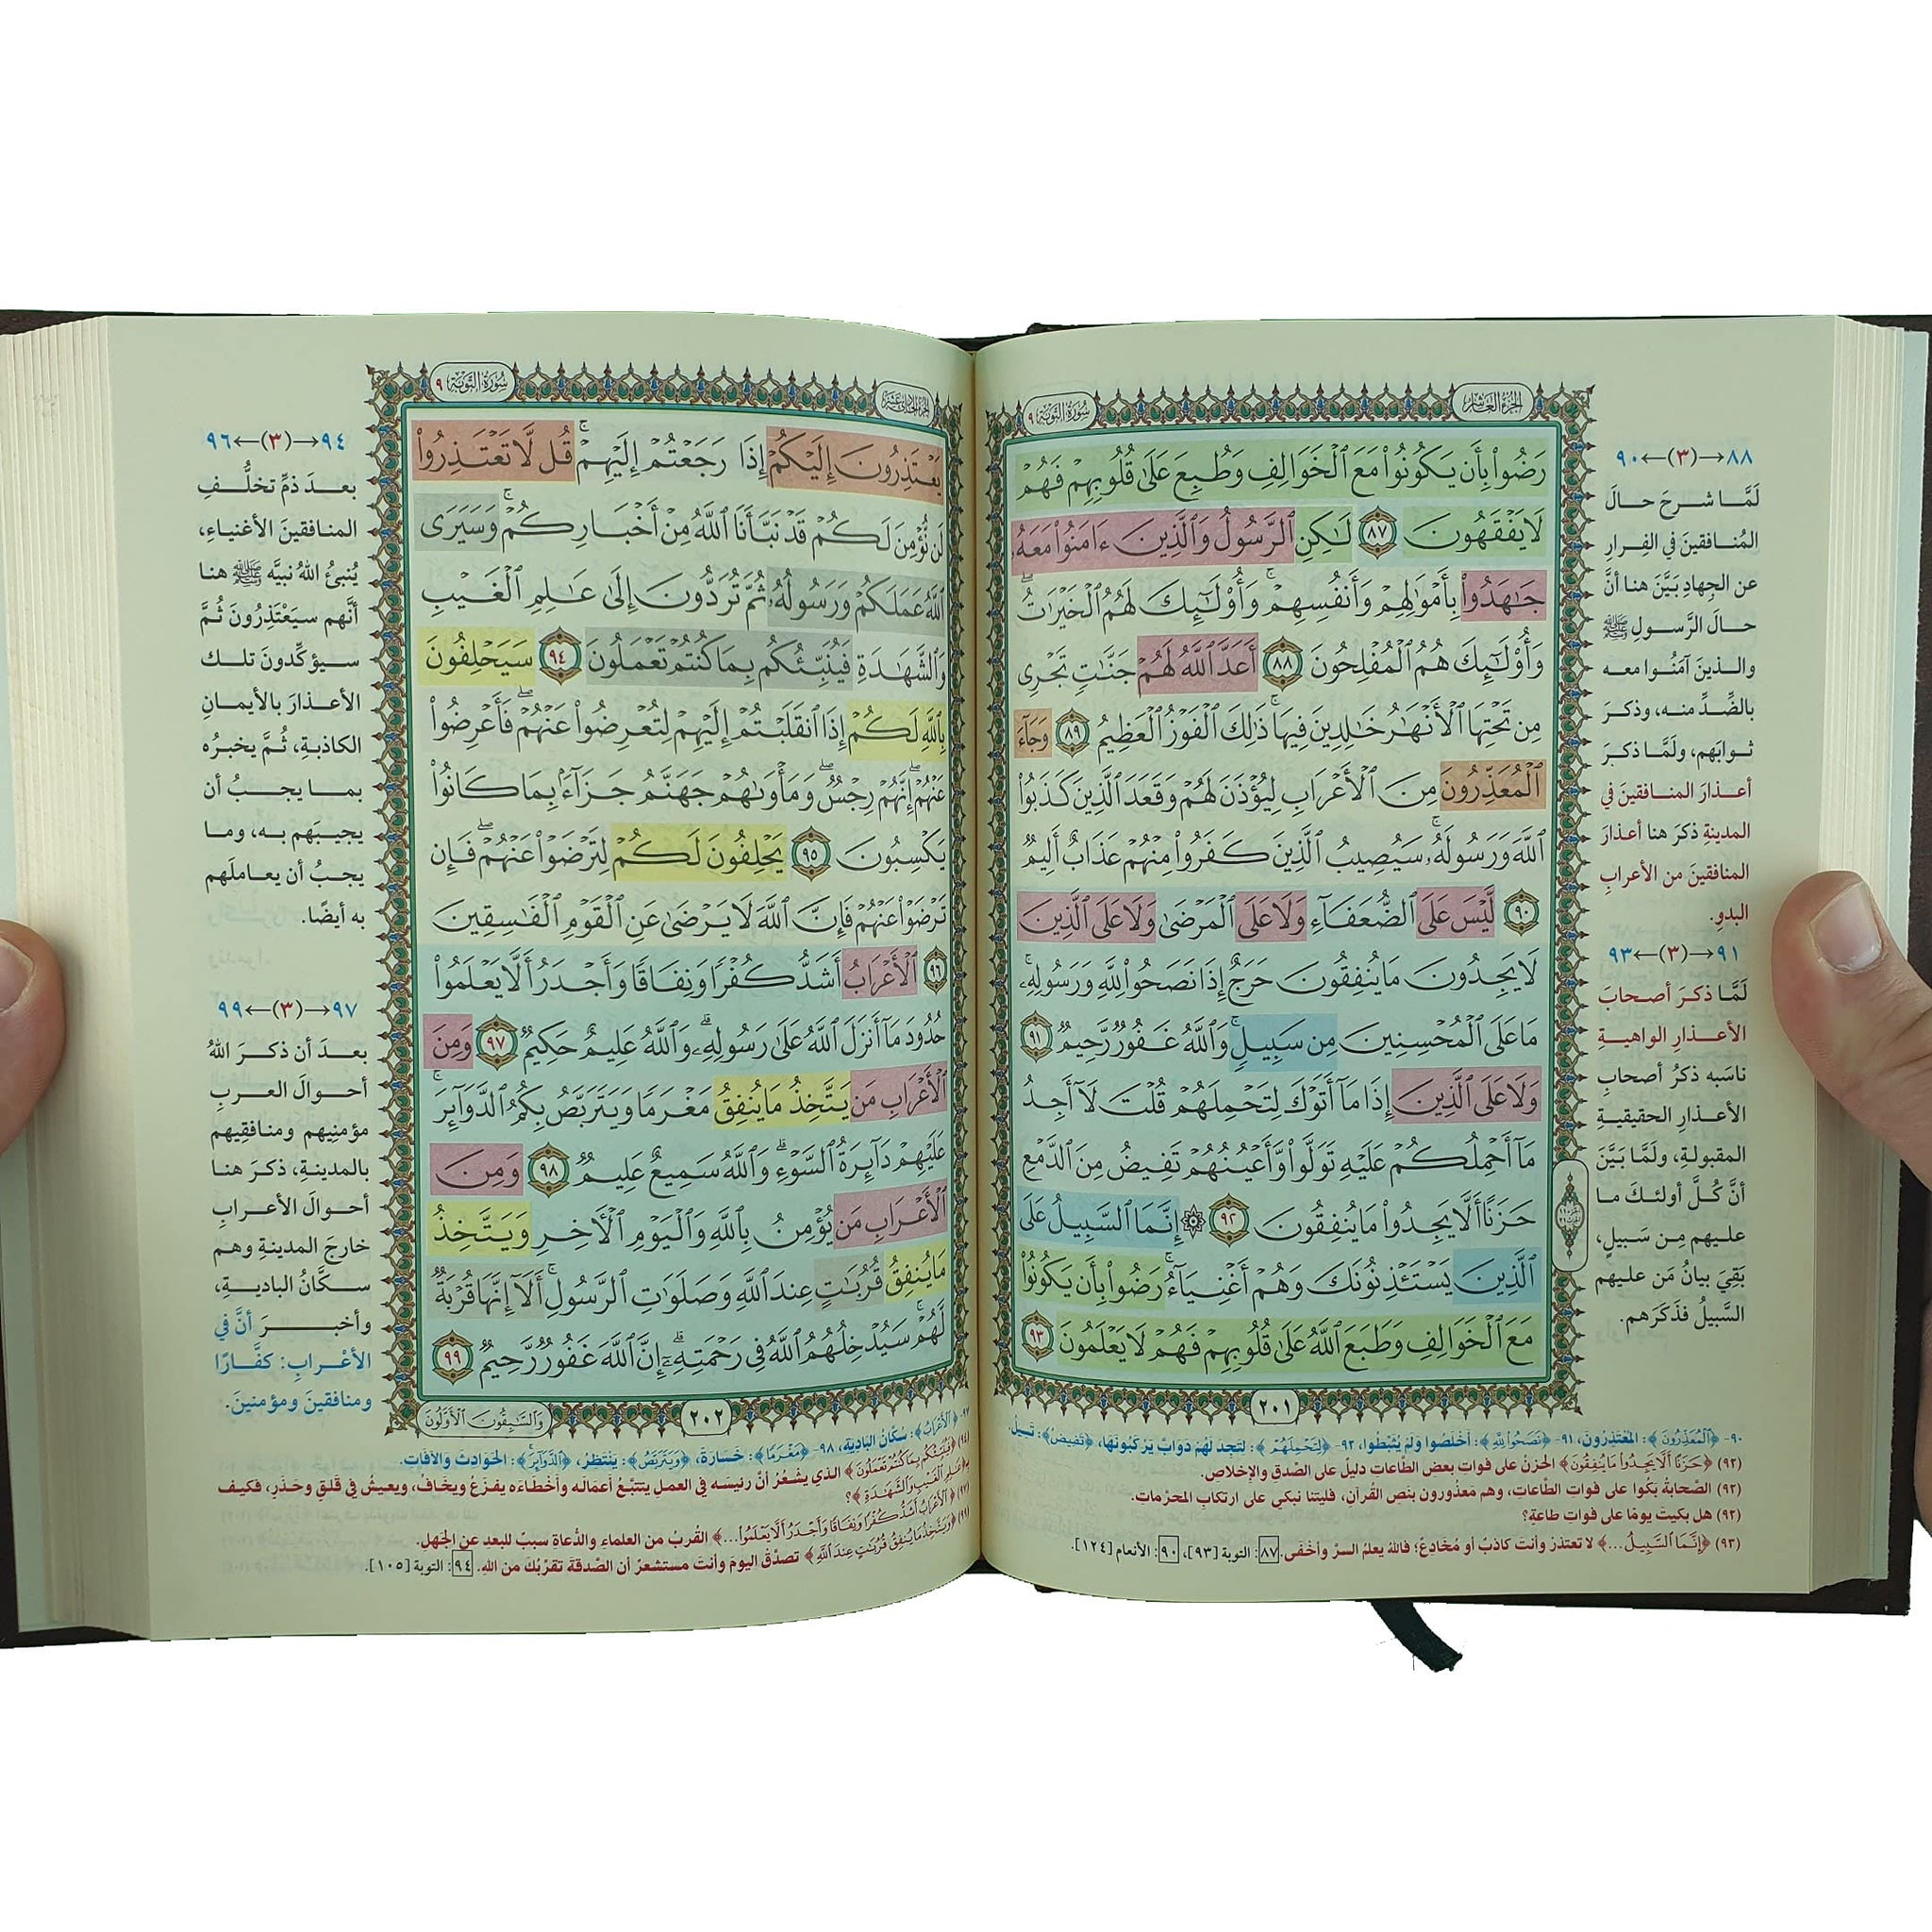 الجزء العاشر
سورة التوبة ٩
رَضُوا۟ بِأَن يَكُونُوا۟ مَعَ ٱلْخَوَالِفِ وَطُبِعَ عَلَىٰ قُلُوبِهِمْ فَهُمْ
لَا يَفْقَهُونَ ٨٧ لَٰكِنِ ٱلرَّسُولُ وَٱلَّذِينَ ءَامَنُوا۟ مَعَهُۥ
جَٰهَدُوا۟ بِأَمْوَٰلِهِمْ وَأَنفُسِهِمْ ۚ وَأُو۟لَٰٓئِكَ لَهُمُ ٱلْخَيْرَٰتُ ۖ
وَأُو۟لَٰٓئِكَ هُمُ ٱلْمُفْلِحُونَ ٨٨ أَعَدَّ ٱللَّهُ لَهُمْ جَنَّٰتٍ تَجْرِى
مِن تَحْتِهَا ٱلْأَنْهَٰرُ خَٰلِدِينَ فِيهَا ۚ ذَٰلِكَ ٱلْفَوْزُ ٱلْعَظِيمُ ٨٩ وَجَآءَ
ٱلْمُعَذِّرُونَ مِنَ ٱلْأَعْرَابِ لِيُؤْذَنَ لَهُمْ وَقَعَدَ ٱلَّذِينَ كَذَبُوا۟
ٱللَّهَ وَرَسُولَهُۥ ۚ سَيُصِيبُ ٱلَّذِينَ كَفَرُوا۟ مِنْهُمْ عَذَابٌ أَلِيمٌ
٩٠ لَّيْسَ عَلَى ٱلضُّعَفَآءِ وَلَا عَلَى ٱلْمَرْضَىٰ وَلَا عَلَى ٱلَّذِينَ
لَا يَجِدُونَ مَا يُنفِقُونَ حَرَجٌ إِذَا نَصَحُوا۟ لِلَّهِ وَرَسُولِهِۦ ۚ
مَا عَلَى ٱلْمُحْسِنِينَ مِن سَبِيلٍ ۚ وَٱللَّهُ غَفُورٌ رَّحِيمٌ ٩١
وَلَا عَلَى ٱلَّذِينَ إِذَا مَآ أَتَوْكَ لِتَحْمِلَهُمْ قُلْتَ لَآ أَجِدُ
مَآ أَحْمِلُكُمْ عَلَيْهِ تَوَلَّوا۟ وَّأَعْيُنُهُمْ تَفِيضُ مِنَ ٱلدَّمْعِ
حَزَنًا أَلَّا يَجِدُوا۟ مَا يُنفِقُونَ ٩٢ ۞ إِنَّمَا ٱلسَّبِيلُ عَلَى
ٱلَّذِينَ يَسْتَـْٔذِنُونَكَ وَهُمْ أَغْنِيَآءُ ۚ رَضُوا۟ بِأَن يَكُونُوا۟
مَعَ ٱلْخَوَالِفِ وَطَبَعَ ٱللَّهُ عَلَىٰ قُلُوبِهِمْ فَهُمْ لَا يَعْلَمُونَ ٩٣
٢٠١
٨٨→(٣)←٩٠
لَمَّا شرحَ حالَ
المُنافقينَ في الفِرارِ
عن الجِهادِ بَيَّنَ هنا أنَّ
حالَ الرَّسولِ ﷺ
والذينَ آمَنُوا معه
بالضِّدِّ منه، وذكرَ
ثوابَهم، ولَمَّا ذكرَ
أعذارَ المنافقينَ في
المدينةِ ذكرَ هنا أعذارَ
المنافقينَ من الأعرابِ
البدوِ.
٩١→(٣)←٩٣
لَمَّا ذكرَ أصحابَ
الأعذارِ الواهيةِ
ناسَبه ذكرُ أصحابِ
الأعذارِ الحقيقيةِ
المقبولةِ، ولَمَّا بَيَّنَ
أنَّ كُلَّ أولئكَ ما
عليهم مِن سَبيلٍ،
بَقِيَ بيانُ مَن عليهم
السَّبيلُ فذَكَرَهم.
٩٠- ﴿ٱلْمُعَذِّرُونَ﴾: المُعْتَذِرُونَ، ٩١- ﴿نَصَحُوا۟ لِلَّهِ﴾: أَخْلَصُوا وَلَمْ يُثَبِّطُوا، ٩٢- ﴿لِتَحْمِلَهُمْ﴾: لِتَجِدَ لَهُمْ دَوَابَّ يَرْكَبُونَهَا، ﴿تَفِيضُ﴾: تَسِيلُ.
(٩٢) ﴿حَزَنًا أَلَّا يَجِدُوا۟ مَا يُنفِقُونَ﴾ الحزنُ على فواتِ بعض الطَّاعاتِ دليلٌ على الصِّدقِ والإخلاصِ.
(٩٢) الصَّحابةُ بكَوا على فواتِ الطَّاعاتِ، وهم مَعذُورون بنَص القُرآنِ، فليتنا نبكي على ارتكابِ المحرَّماتِ.
(٩٢) هل بكيتَ يومًا على فواتِ طاعةٍ؟
(٩٣) ﴿إِنَّمَا ٱلسَّبِيلُ...﴾ لا تعتذرْ وأنتَ كاذبٌ أو مُخَادِعٌ؛ فاللهُ يعلمُ السرَّ وأخْفَى. ٨٧: التوبة [٩٣]، ٩٠: الأنعام [١٢٤].
سورة التوبة ٩
يَعْتَذِرُونَ إِلَيْكُمْ إِذَا رَجَعْتُمْ إِلَيْهِمْ ۚ قُل لَّا تَعْتَذِرُوا۟
لَن نُّؤْمِنَ لَكُمْ قَدْ نَبَّأَنَا ٱللَّهُ مِنْ أَخْبَارِكُمْ ۚ وَسَيَرَى
ٱللَّهُ عَمَلَكُمْ وَرَسُولُهُۥ ثُمَّ تُرَدُّونَ إِلَىٰ عَٰلِمِ ٱلْغَيْبِ
وَٱلشَّهَٰدَةِ فَيُنَبِّئُكُم بِمَا كُنتُمْ تَعْمَلُونَ ٩٤ سَيَحْلِفُونَ
بِٱللَّهِ لَكُمْ إِذَا ٱنقَلَبْتُمْ إِلَيْهِمْ لِتُعْرِضُوا۟ عَنْهُمْ ۖ فَأَعْرِضُوا۟
عَنْهُمْ ۖ إِنَّهُمْ رِجْسٌ ۖ وَمَأْوَىٰهُمْ جَهَنَّمُ جَزَآءًۢ بِمَا كَانُوا۟
يَكْسِبُونَ ٩٥ يَحْلِفُونَ لَكُمْ لِتَرْضَوْا۟ عَنْهُمْ ۖ فَإِن
تَرْضَوْا۟ عَنْهُمْ فَإِنَّ ٱللَّهَ لَا يَرْضَىٰ عَنِ ٱلْقَوْمِ ٱلْفَٰسِقِينَ
٩٦ ٱلْأَعْرَابُ أَشَدُّ كُفْرًا وَنِفَاقًا وَأَجْدَرُ أَلَّا يَعْلَمُوا۟
حُدُودَ مَآ أَنزَلَ ٱللَّهُ عَلَىٰ رَسُولِهِۦ ۗ وَٱللَّهُ عَلِيمٌ حَكِيمٌ ٩٧ وَمِنَ
ٱلْأَعْرَابِ مَن يَتَّخِذُ مَا يُنفِقُ مَغْرَمًا وَيَتَرَبَّصُ بِكُمُ ٱلدَّوَآئِرَ ۚ
عَلَيْهِمْ دَآئِرَةُ ٱلسَّوْءِ ۗ وَٱللَّهُ سَمِيعٌ عَلِيمٌ ٩٨ وَمِنَ
ٱلْأَعْرَابِ مَن يُؤْمِنُ بِٱللَّهِ وَٱلْيَوْمِ ٱلْءَاخِرِ وَيَتَّخِذُ
مَا يُنفِقُ قُرُبَٰتٍ عِندَ ٱللَّهِ وَصَلَوَٰتِ ٱلرَّسُولِ ۚ أَلَآ إِنَّهَا قُرْبَةٌ
لَّهُمْ ۚ سَيُدْخِلُهُمُ ٱللَّهُ فِى رَحْمَتِهِۦٓ ۗ إِنَّ ٱللَّهَ غَفُورٌ رَّحِيمٌ ٩٩
٢٠٢
وَٱلسَّٰبِقُونَ ٱلْأَوَّلُونَ
٩٤→(٣)←٩٦
بعدَ ذمِّ تخلُّفِ
المنافقينَ الأغنياءِ،
يُنبئُ اللهُ نبيَّه ﷺ هنا
أنَّهم سيَعْتَذِرُونَ ثُمَّ
سيؤكِّدونَ تلك
الأعذارَ بالأيمانِ
الكاذبةِ، ثُمَّ يخبرُه
بما يجبُ أن
يجيبَهم به، وما
يجبُ أن يعاملَهم
به أيضًا.
٩٧→(٣)←٩٩
بعدَ أن ذكرَ اللهُ
أحوالَ العربِ
مؤمنِيهم ومنافقِيهم
بالمدينةِ، ذكرَ هنا
أحوالَ الأعرابِ
خارجَ المدينةِ وهم
سكَّانُ الباديةِ،
وأخبرَ أنَّ في
الأعْرابِ: كفَّارًا
ومنافقينَ ومؤمنينَ.
٩٧- ﴿ٱلْأَعْرَابُ﴾: سُكَّانُ البَادِيَةِ، ٩٨- ﴿مَغْرَمًا﴾: خَسَارَةً، ﴿وَيَتَرَبَّصُ﴾: يَنْتَظِرُ، ﴿ٱلدَّوَآئِرَ﴾: الحَوَادِثَ وَالآفَاتِ.
(٩٤) ﴿فَيُنَبِّئُكُم بِمَا كُنتُمْ تَعْمَلُونَ﴾ الذي يشعُرُ أنَّ رئيسَه في العملِ يتتبَّعُ أعمالَه وأخطاءَه يفزَعُ ويخَافُ، ويعيشُ في قَلَقٍ وحَذَرٍ، فكيف
عَٰلِمِ ٱلْغَيْبِ وَٱلشَّهَٰدَةِ﴾؟
(٩٧) ﴿ٱلْأَعْرَابُ أَشَدُّ كُفْرًا وَنِفَاقًا وَأَجْدَرُ أَلَّا يَعْلَمُوا۟...﴾ القُربُ من العلماءِ والدُّعاةِ سببٌ للبعدِ عن الجَهلِ.
(٩٩) ﴿وَيَتَّخِذُ مَا يُنفِقُ قُرُبَٰتٍ عِندَ ٱللَّهِ﴾ تصدَّقْ اليومَ وأنتَ مستشعرٌ أن الصَّدقةَ تقرِّبُكَ من اللهِ. ٩٤: التوبة [١٠٥].